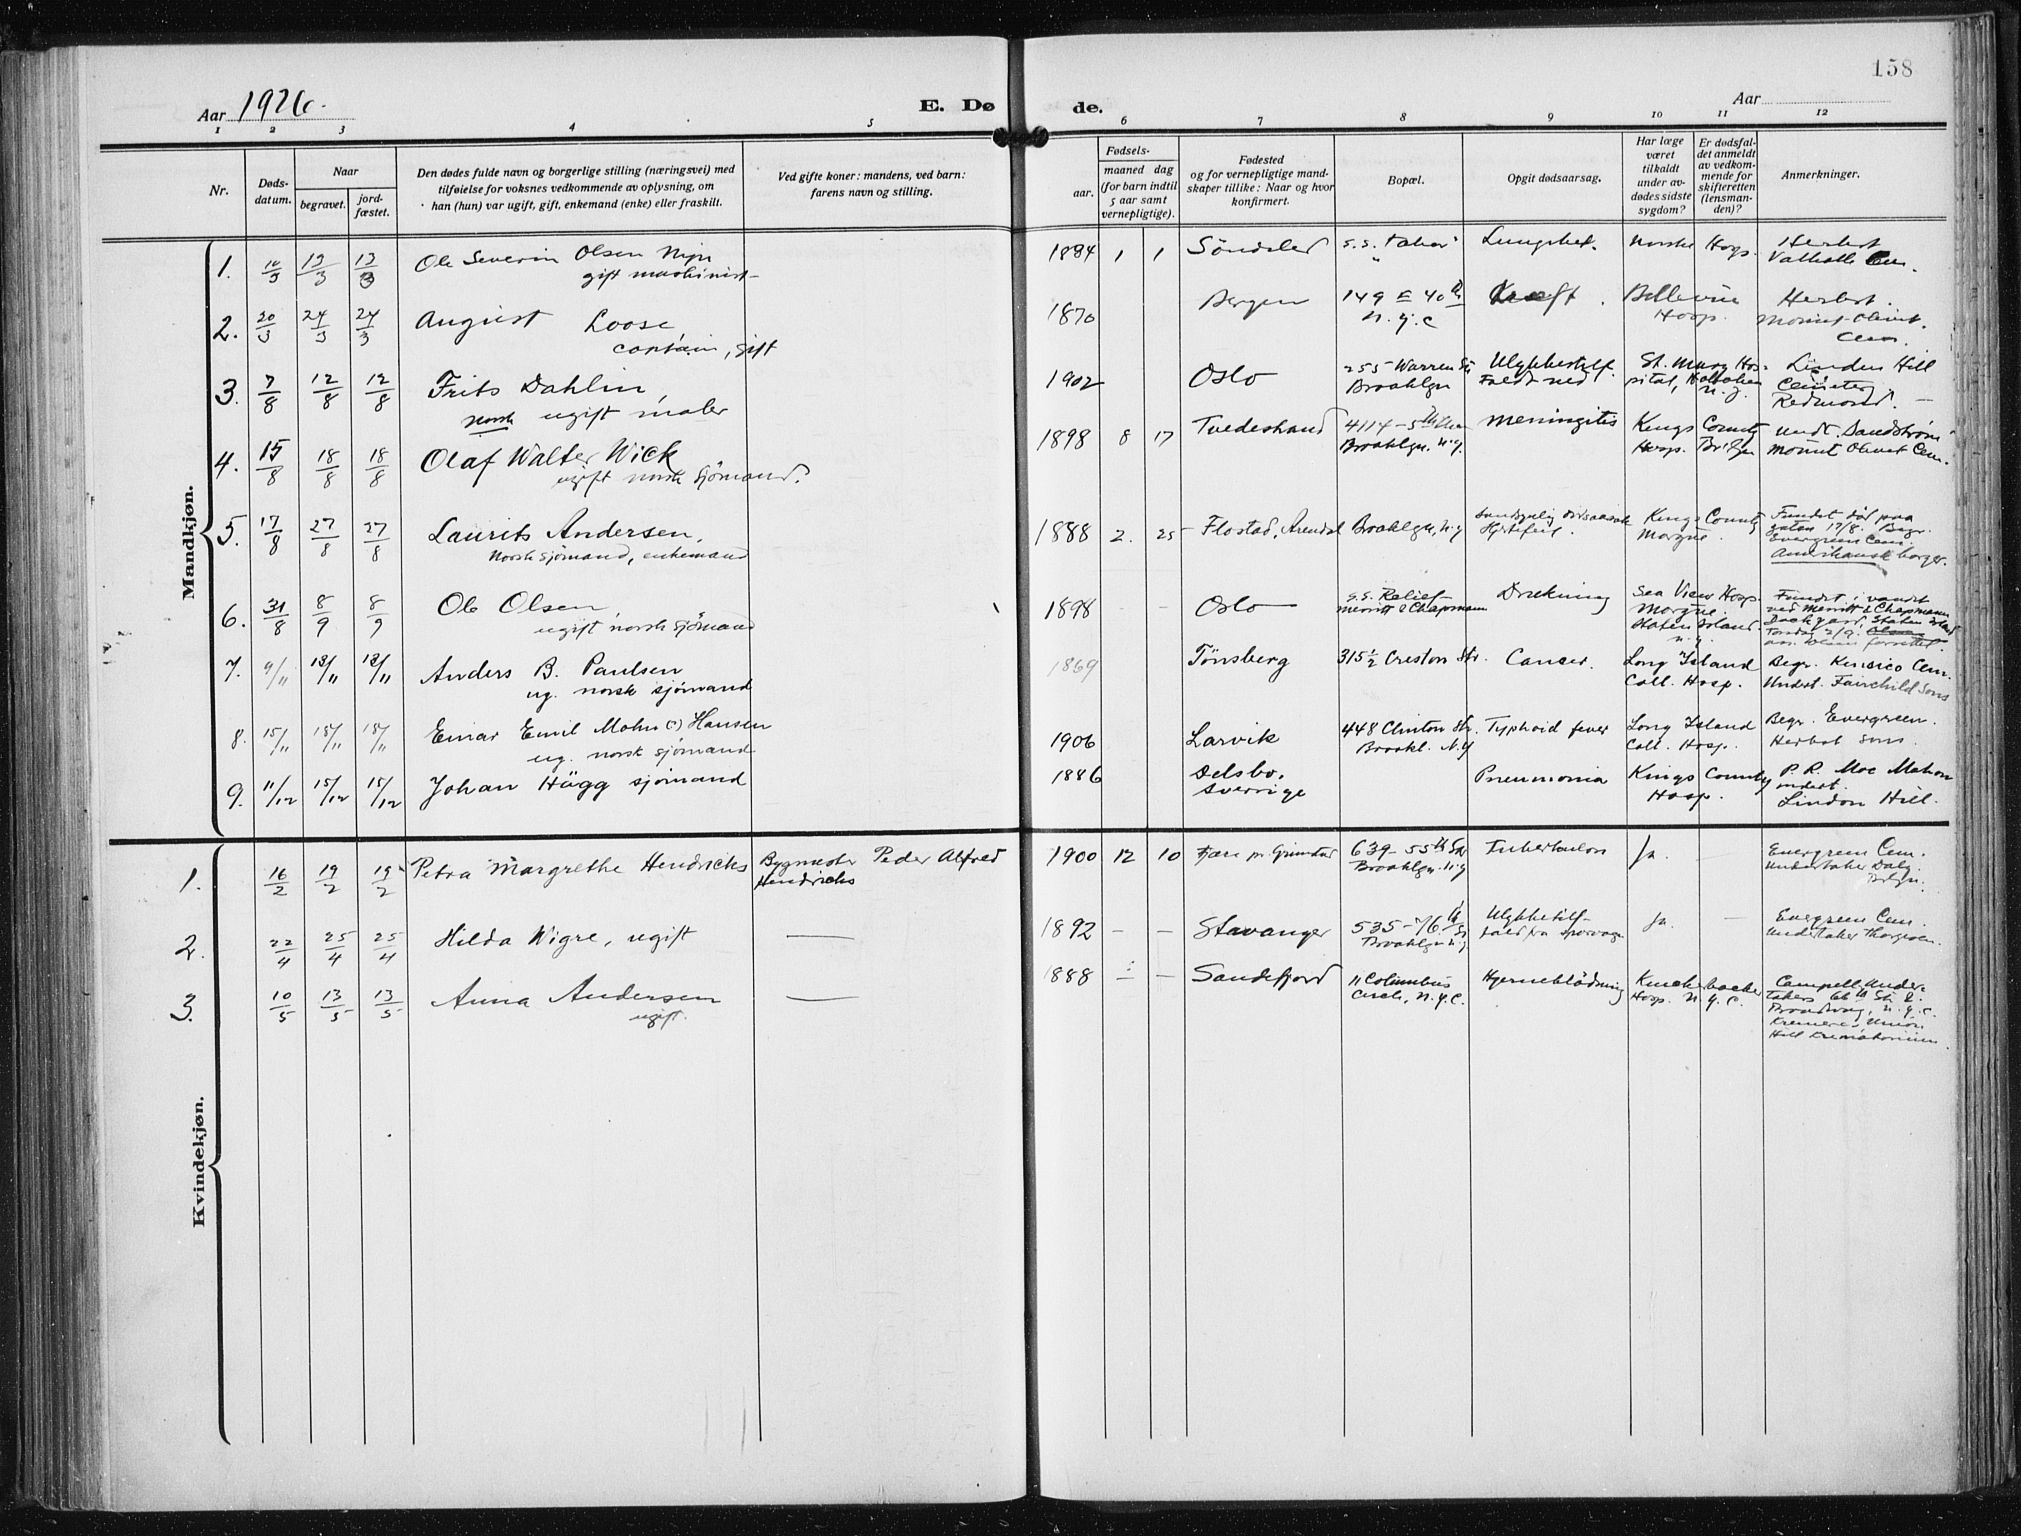 158
Aar 1926.
E. Døde.
Aar
1 2 3 4 5 6 7 8 9 10 11 12
Nr.
Døds-
datum.
Naar
begravet.
jord-
fæstet.
Den dødes fulde navn og borgerlige stilling (næringsvei) med
tilføielse for voksnes vedkommende av oplysning, om
han (hun) var ugift, gift, enkemand (enke) eller fraskilt.
Ved gifte koner: mandens, ved barn:
farens navn og stilling.
Fødsels-
aar.
maaned dag
(for barn indtil
5 aar samt
vernepligtige).
Fødested
og for vernepligtige mand-
skaper tillike: Naar og hvor
konfirmert.
Bopæl.
Opgit dødsaarsag.
Har læge
været
tilkaldt
under av-
dødes sidste
sygdom?
Er dødsfal-
det anmeldt
av vedkom-
mende for
skifteretten
(lensman-
den)?
Anmerkninger.
Mandkjøn.
1. 10/3 13/3 13/3 Ole Severin Olsen 1884 1 1 Søndeled s.s. Norske Hosp. Herbst
gift maskinist Valhalla Cem.
2. 20/3 24/3 24/3 August Loose, 1870 Bergen 149 E 40th Kræft. Bellevue Herbst.
captain, gift N.Y.C Hosp. Mount Olivet
Cem.
3. 7/8 12/8 12/8 Frits Dahlin, 1902 Oslo 255 Warren St. Ulykkestilf. St. Mary Hos- Linden Hill
norsk ugift maler Brooklyn Faldt ned pital, Hoboken Cemetery
N.J. Redmond.
4. 15/8 18/8 18/8 Olaf Walter Wick 1898 8 17 Tvedestrand 4114-5th Ave Meningitis Kings County Undt. Sandstrøm
ugift norsk sjömand. Brooklyn, N.Y. Hosp. Br'lyn Mount Olivet Cem.
5. 17/8 27/8 27/8 Laurits Andersen, 1888 2. 25 Flostad, Arendal Brooklyn, N.Y. Kings County Fundet död paa
norsk sjömand, enkemand Hjertefeil. Morgue. gaten 17/8. Begr.
Evergreen Cem.
Amerikansk borger.
6. 31/8 8/9 8/9 Ole Olsen, 1898 - - Oslo s.s. Relief Drukning Sea View Hosp. Fundet i vandet
ugift norsk sjömand Merritt & Chapmann Morgue. ved Merritt & Chapmann
Staten Island. Dockyard, Staten Island
N.Y.
7. 9/11 12/11 12/11 Anders B. Paulsen 1869 Tönsberg 315½ Creston Str. Cancer. Long Island Begr. Kensico Cem.
ug. norsk sjömand Coll. Hosp. Undert. Fairchild Sons
8. 15/11 18/11 18/11 Einar Emil Mohn (?) Hansen 1906 Larvik 448 Clinton Str. Typhoid fever Long Island Begr. Evergreen.
ug. norsk sjömand Brookl. N.Y Coll. Hosp. Herbst Sons.
9. 11/12 15/12 15/12 Johan Hägg sjömand 1886 Delsbo. Pneumonia Kings County P. R. Mac Mahon
Sverrige Hosp. undert.
Linden Hill.
Kvindekjøn.
1. 16/2 19/2 19/2 Petra Margrethe Hendrichs Bygmester Peder Alfred 1900 12 10 Fjære pr Grimstad 639-55th Str Tuberkulose Ja. - Evergreen Cem.
Hendrichs Brooklyn. N.Y Undertaker Daly
Brlyn.
2. 22/4 25/4 25/4 Hilda Wigre, ugift — 1892 - - Stavanger 535-76th St Ulykkestilf- Ja. - Evergreen Cem.
Brooklyn N.Y fald fra sporvogn Undertaker
3. 10/5 13/5 13/5 Anna Andersen — 1888 - - Sandefjord 11 Columbus Hjerneblödning Knickerbocker Campell Under-
ugift. Circle, N.Y.C. Hosp. N.Y.C. takers 66th St. &
Broadway, N.Y.C.
Kremeres Union
Hill Krematorium.